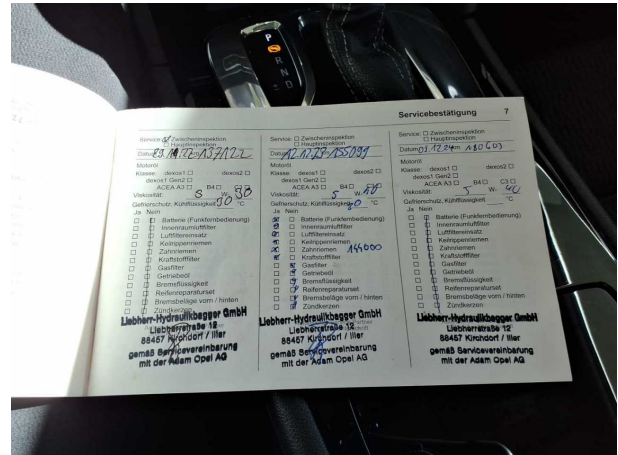 P
R
N
D
Servicebestätigung 7
Service: Zwischeninspektion
Hauptinspektion
Datum 137122
Motoröl
Klasse: dexos1 dexos2
dexos1 Gen2
ACEA A3 B4 C3
Viskosität: 5 W- 30
Gefrierschutz, Kühlflüssigkeit 30 °C
Ja Nein
Batterie (Funkfernbedienung)
Innenraumluftfilter
Luftfiltereinsatz
Keilrippenriemen
Zahnriemen
Kraftstofffilter
Gasfilter
Getriebeöl
Bremsflüssigkeit
Reifenreparaturset
Bremsbeläge vorn / hinten
Zündkerzen
Liebherr-Hydraulikbagger GmbH
Liebherrstraße 12
88457 Kirchdorf / Iller
gemäß Servicevereinbarung
mit der Adam Opel AG
Service: Zwischeninspektion
Hauptinspektion
Datum 12.12.23 155099
Motoröl
Klasse: dexos1 dexos2
dexos1 Gen2
ACEA A3 B4 C3
Viskosität: 5 W-
Gefrierschutz, Kühlflüssigkeit °C
Ja Nein
Batterie (Funkfernbedienung)
Innenraumluftfilter
Luftfiltereinsatz
Keilrippenriemen
Zahnriemen
Kraftstofffilter
Gasfilter
Getriebeöl
Bremsflüssigkeit
Reifenreparaturset
Bremsbeläge vorn / hinten
Zündkerzen
Liebherr-Hydraulikbagger GmbH
Liebherrstraße 12
88457 Kirchdorf / Iller
gemäß Servicevereinbarung
mit der Adam Opel AG
Service: Zwischeninspektion
Hauptinspektion
Datum 03.12.24 km 180603
Motoröl
Klasse: dexos1 dexos2
dexos1 Gen2
ACEA A3 B4 C3
Viskosität: 5 W- 40
Gefrierschutz, Kühlflüssigkeit °C
Ja Nein
Batterie (Funkfernbedienung)
Innenraumluftfilter
Luftfiltereinsatz
Keilrippenriemen
Zahnriemen
Kraftstofffilter
Gasfilter
Getriebeöl
Bremsflüssigkeit
Reifenreparaturset
Bremsbeläge vorn / hinten
Zündkerzen
Liebherr-Hydraulikbagger GmbH
Liebherrstraße 12
88457 Kirchdorf / Iller
gemäß Servicevereinbarung
mit der Adam Opel AG